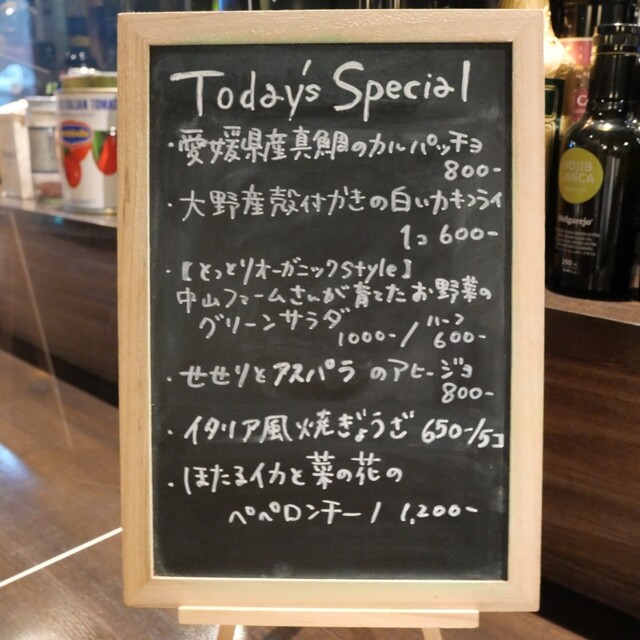 Today's Special
・愛媛県産真鯛のカルパッチョ
800-
・大野産殻付かきの白いカキフライ
1コ 600-
・【とっとりオーガニックstyle】
中山ファームさんが育てたお野菜の
グリーンサラダ
1000-/ハーフ 600-
・せせりとアスパラのアヒージョ
800-
・イタリア風焼ぎょうざ 650-/5コ
・ほたるイカと菜の花の
ペペロンチーノ 1,200-
ITALIAN TOMA
HOJIB
LANCA
Melgarejo